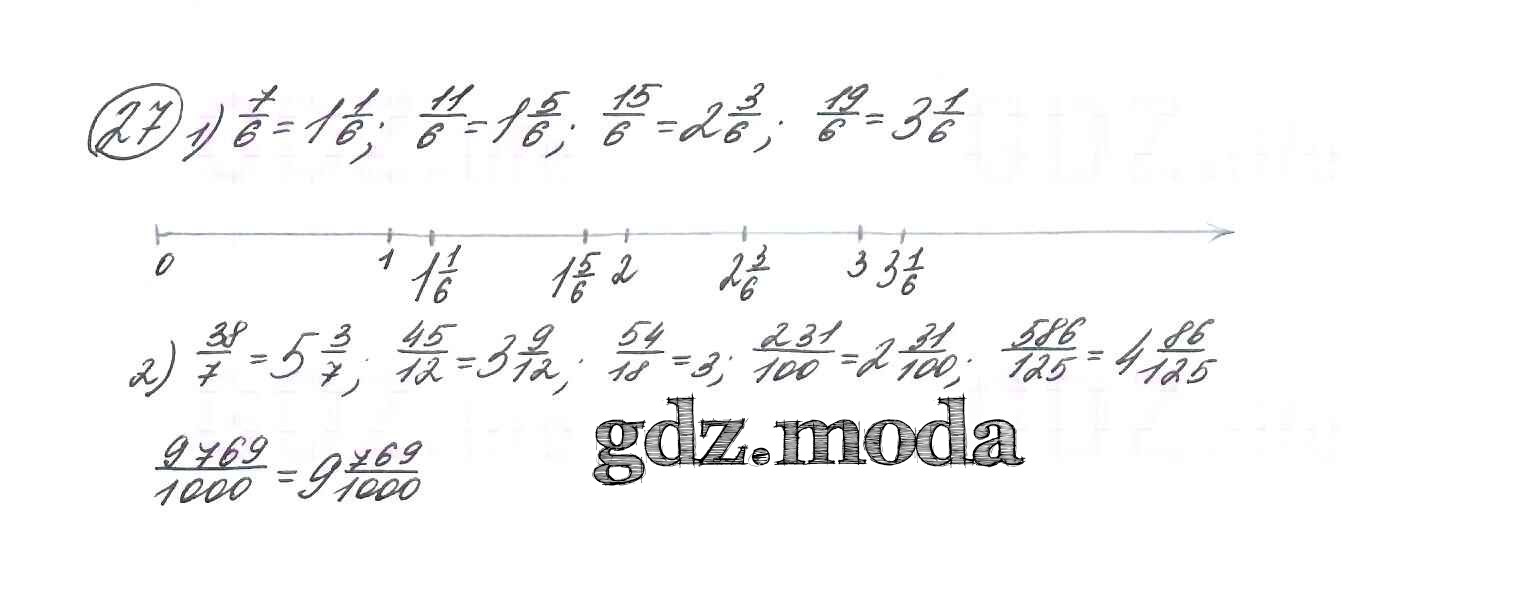 27 1) 7/6 = 1 1/6; 11/6 = 1 5/6; 15/6 = 2 3/6; 19/6 = 3 1/6
0 1 1 1/6 1 5/6 2 2 3/6 3 3 1/6
2) 38/7 = 5 3/7; 45/12 = 3 9/12; 54/18 = 3; 231/100 = 2 31/100; 586/125 = 4 86/125
gdz.moda
9769/1000 = 9 769/1000